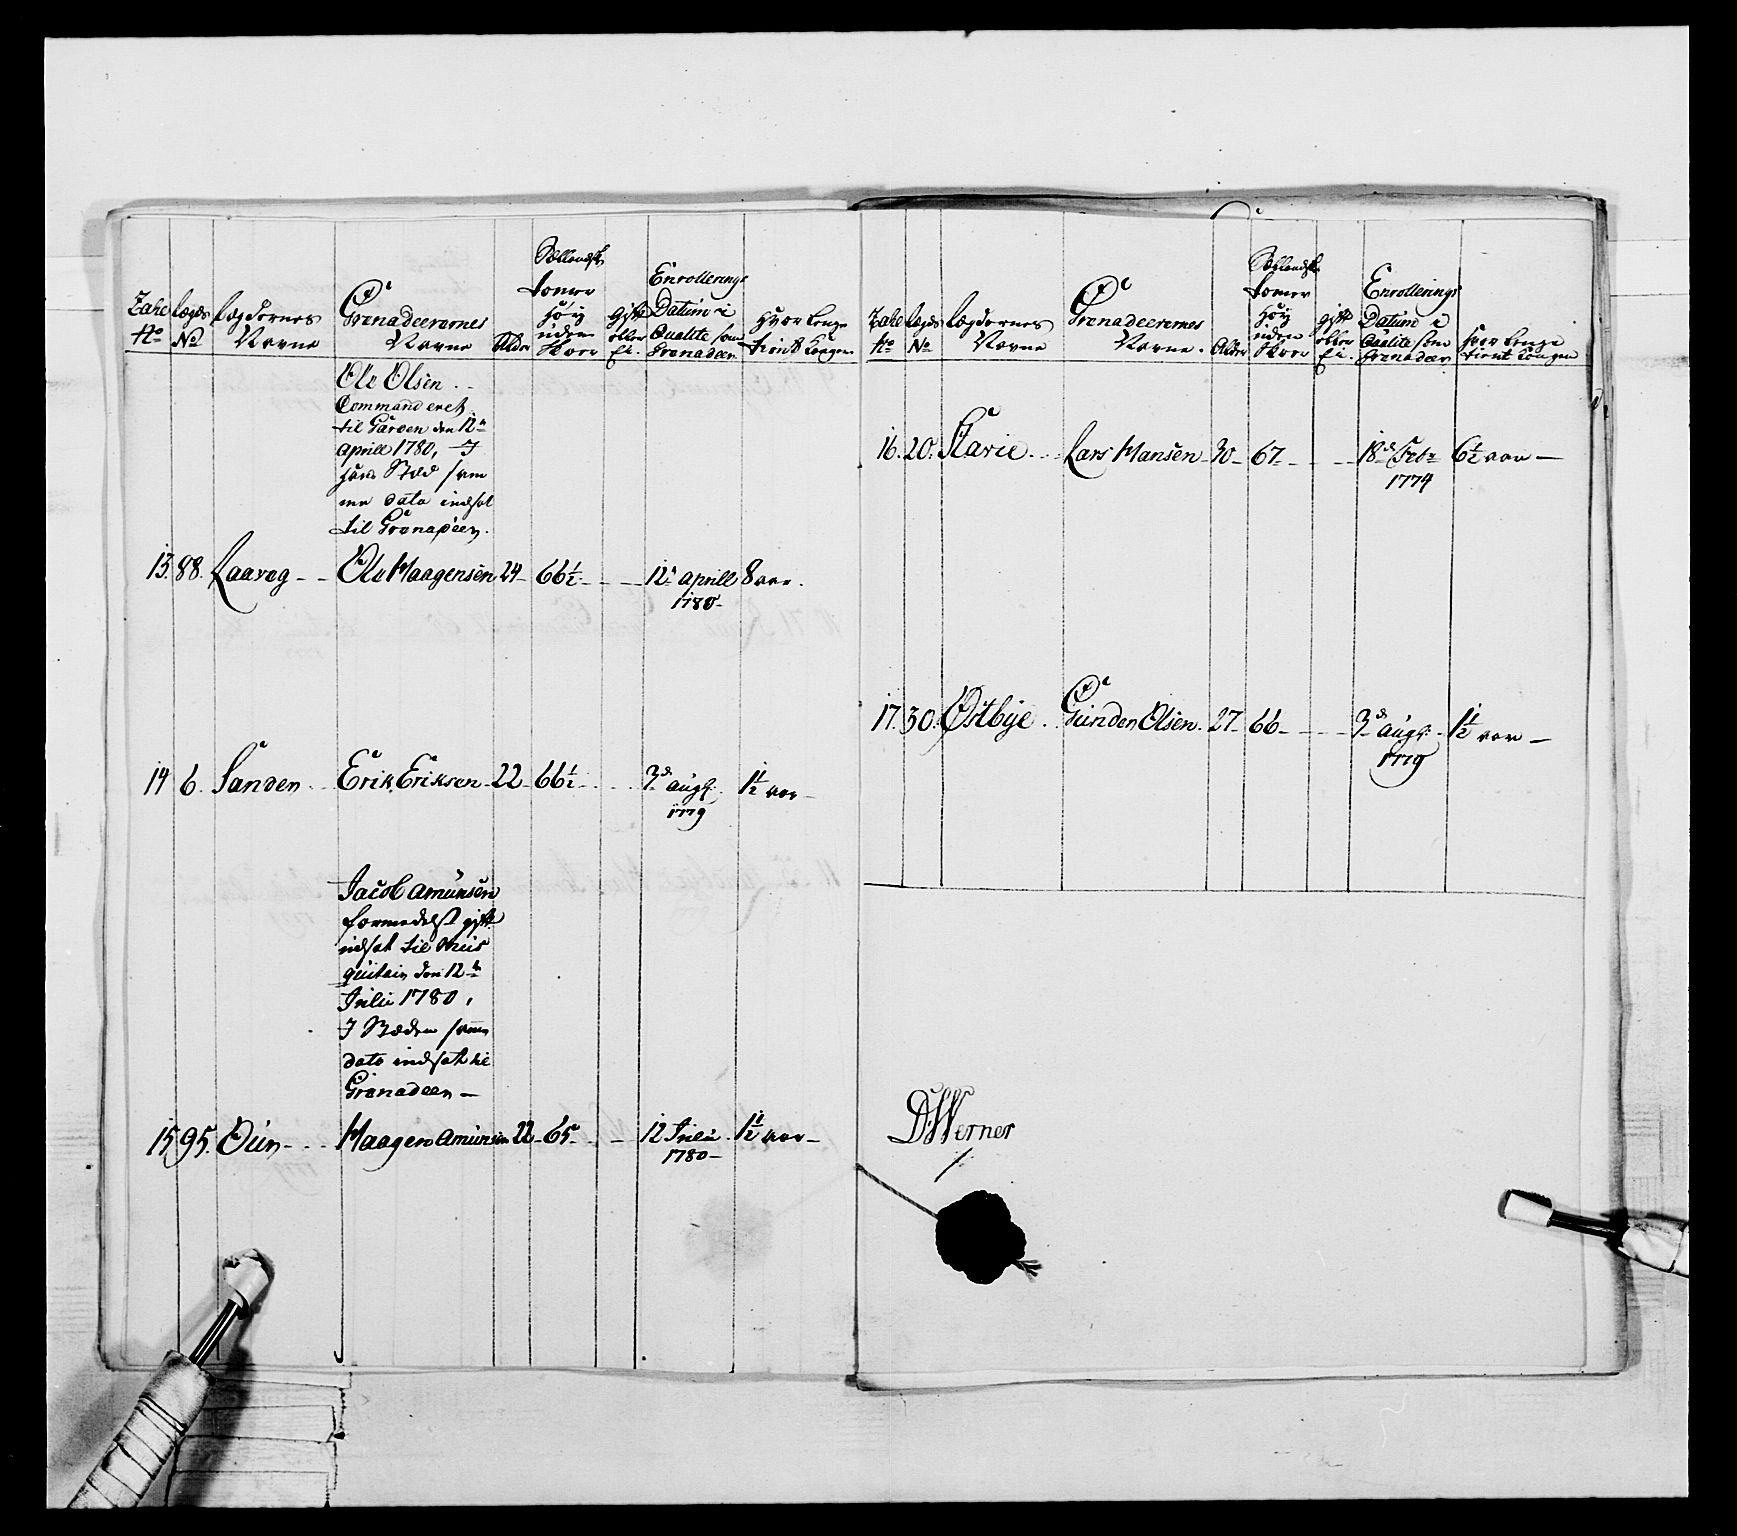 Tahl No
Lægds No
Lægdernes Navne
Grenadeerernes Navne
Alder
Sællandsk tomer höy uden Skoe
gift eller Ei.
Enrollerings Datum i Qualite som Grenadeer
hvor lenge tient Kongen
Ole Olsen
Commanderet
til Garden den 12te
Aprill 1780, I
hans Stæd sam
me dato indsat
til Grenadeer.
13. 88. Laarag - - Ole Haagensen 24 - 66½ - - - 12te Aprill 8 aar.
1780 -
14 6. Sanden - - Erik Eriksen - 22 - 66½ - - - 3de Aug: - 1½ aar -
1779
Jacob Amunsen
formedelst gift
indsat til Mus
quiteer den 12te
Julii 1780,
I Stæden samme
dato indsat til
Grenadeer -
15 95. Duun - - - Haagen Amunsen 22 - 65 - - - 12 Julii - 1½ aar -
1780 -
Tahl No
Lægds No
Lægdernes Navne
Grenadeerernes Navne.
Alder
Sællandsk tomer höy uden Skoe
gift eller Ei.
Enrollerings Datum i Qualite som Grenadeer
hvor lenge tient Kongen
16. 20. Starie - - - Lars Hansen - 30 - 67 - - - 18de Febr 6½ aar -
1774
17. 30. Østbye - Gunder Olsen - 27 - 66 - - - 3de Aug: - 1½ aar -
1779
D: Werner